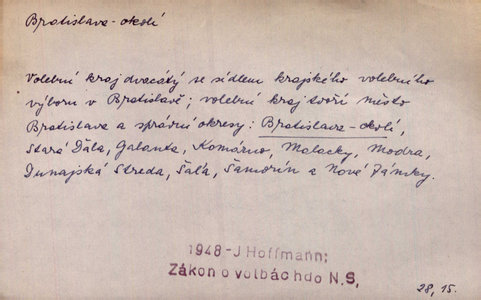 Bratislava-okolí
Volební kraj dvacátý se sídlem krajského volebního
výboru v Bratislavě; volební kraj tvoří město
Bratislava a správní okresy: Bratislava-okolí,
Stará Ďala, Galanta, Komárno, Malacky, Modra,
Dunajská Streda, Šaľa, Šamorín a Nové Zámky.
1948-J Hoffmann:
Zákon o volbách do N.S,
28, 15.